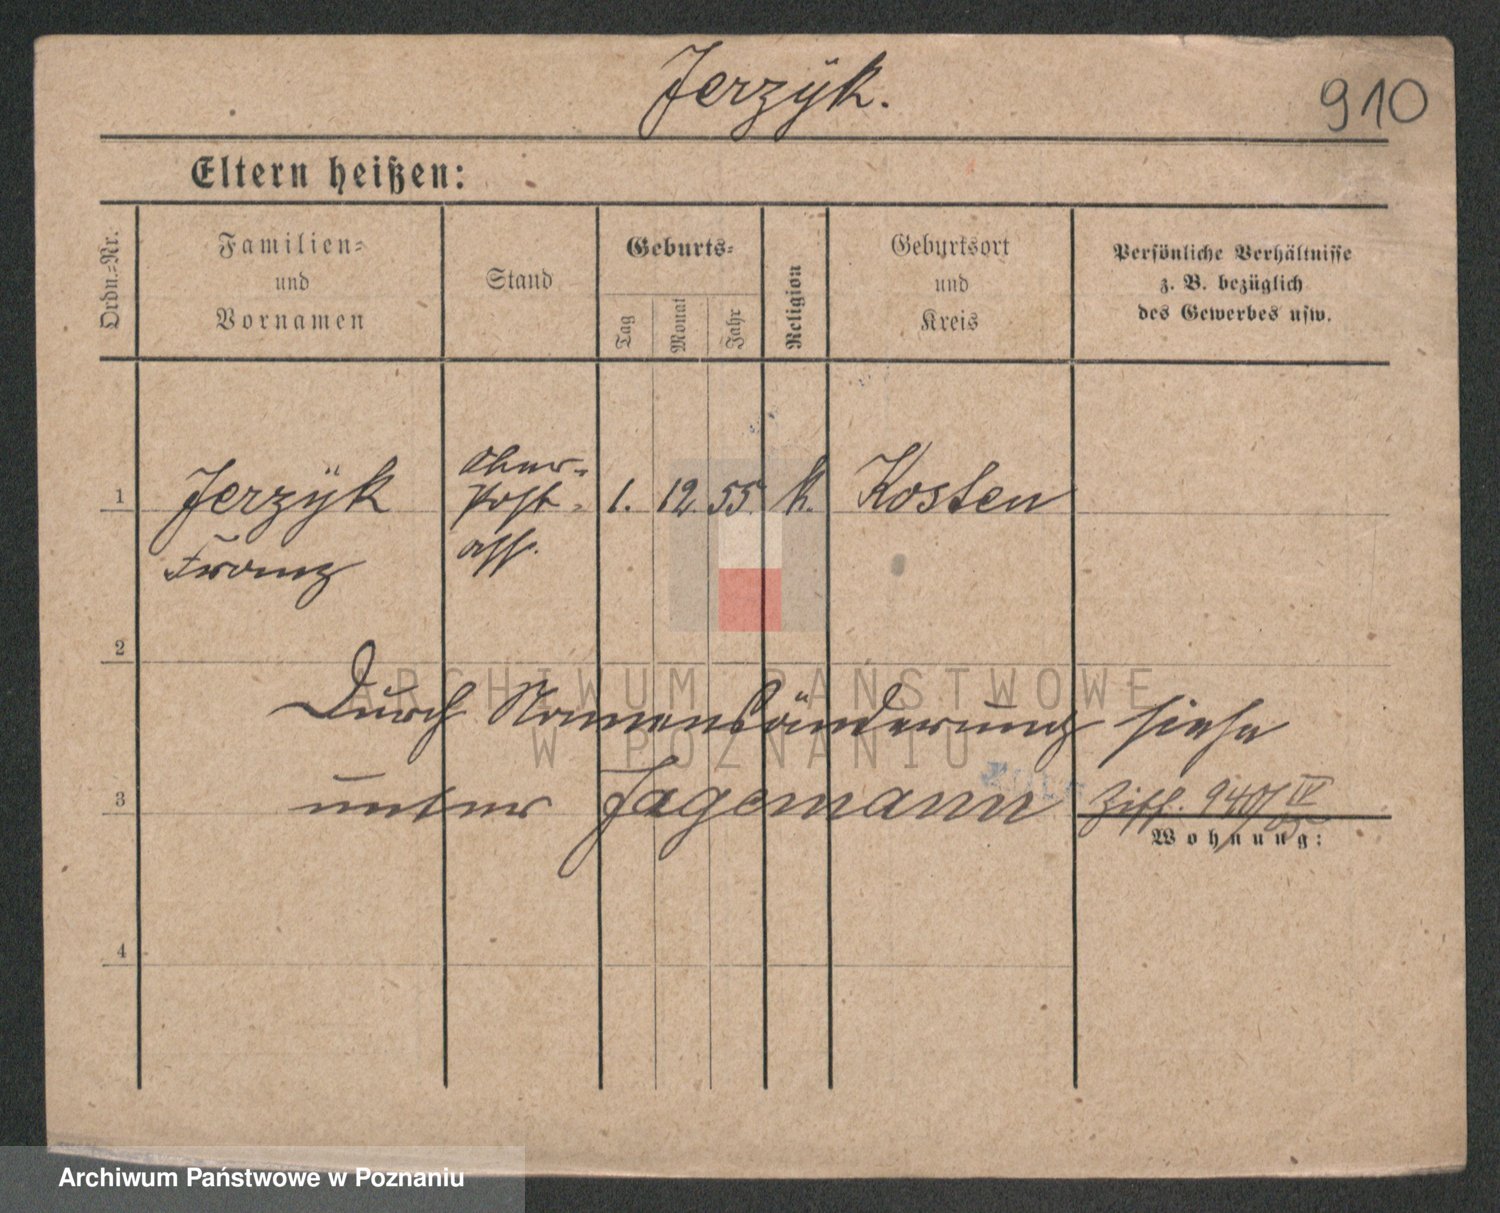 Jerzÿk.
910
Eltern heißen:
Ordn.-Nr.
Familien-
und
Vornamen
Stand
Geburts-
Tag
Monat
Jahr
Religion
Geburtsort
und
Kreis
Persönliche Verhältnisse
z. B. bezüglich
des Gewerbes usw.
1
Jerzÿk
Franz
Ober-
Post-
ass.
1. 12. 55. k. Kosten
2
Durch Namensänderung siehe
3
unter Jagemann
Wohnung:
4
ARCHIWUM PAŃSTWOWE
W POZNANIU
Archiwum Państwowe w Poznaniu